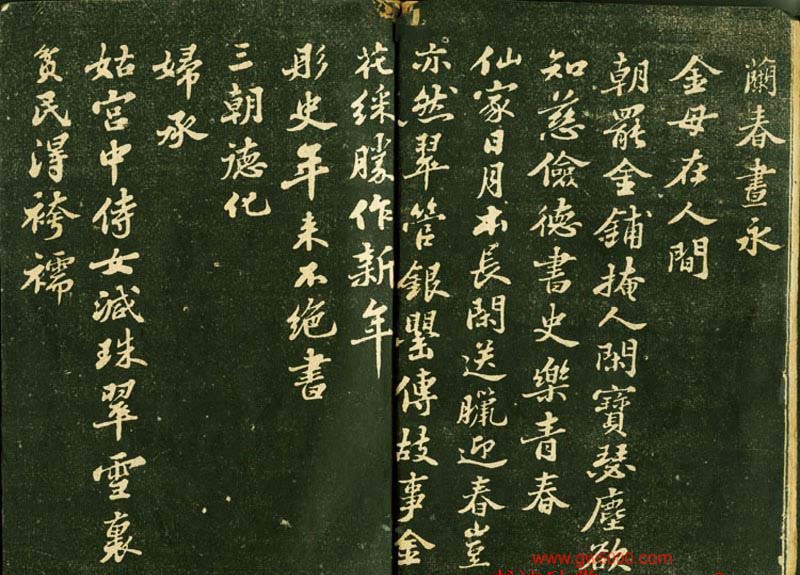 蘭春晝永
金母在人間
朝罷金鋪掩人閑寶瑟塵欲
知慈儉德書史樂青春
仙家日月本長閑送臘迎春豈
亦然翠管銀罌傳故事金
花綵勝作新年
彤史年來不絕書
三朝德化
婦承
姑宮中侍女減珠翠雪裏
貧民得袴襦